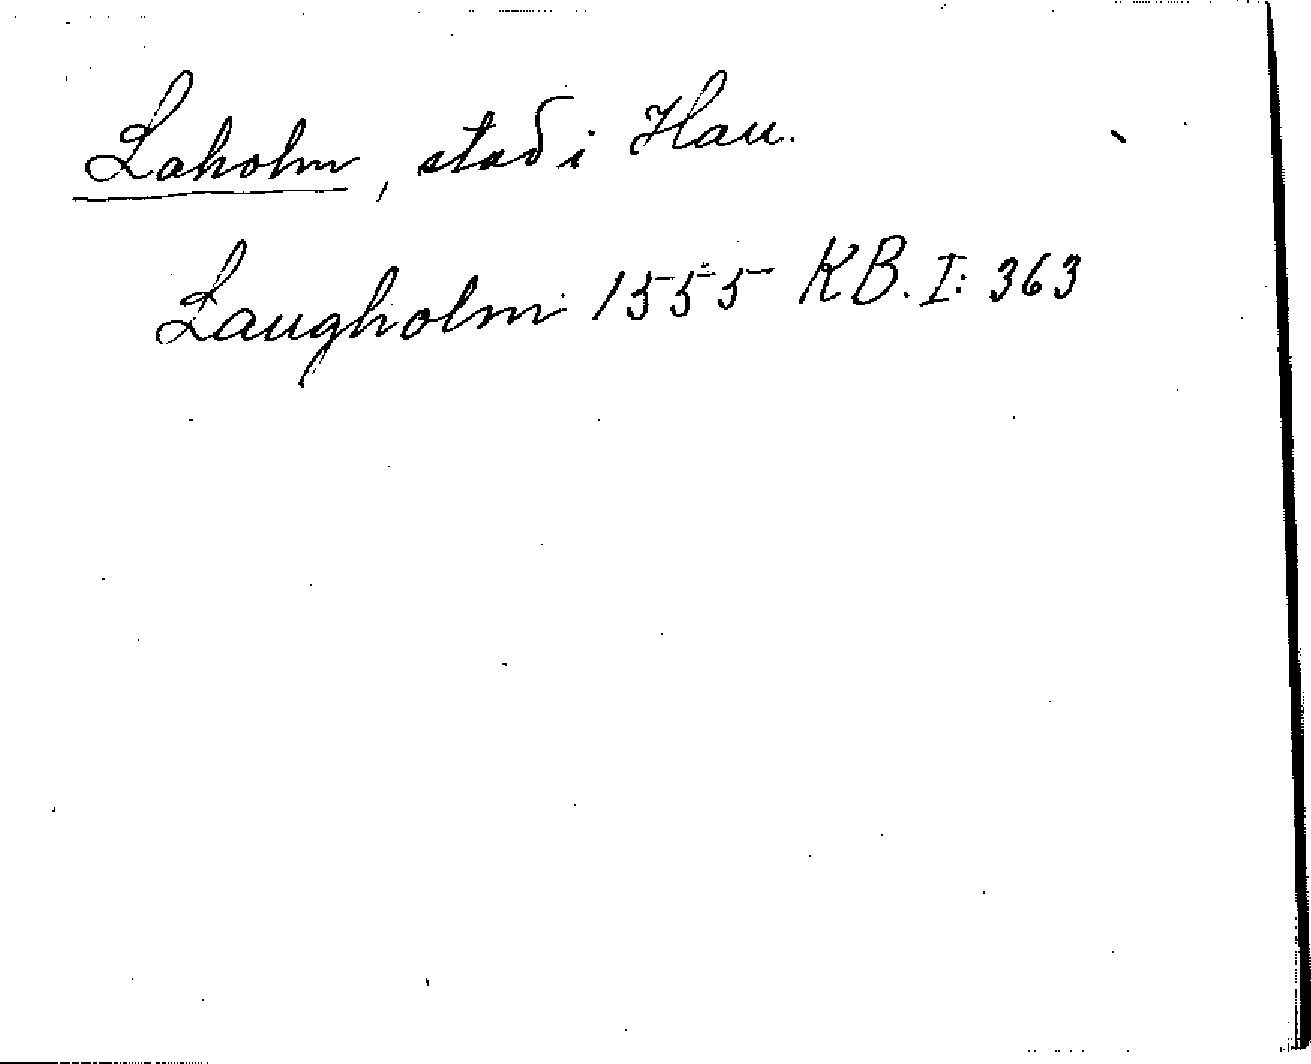 Laholm, stad i Hall.
Laugholm 1555 KB. I: 363